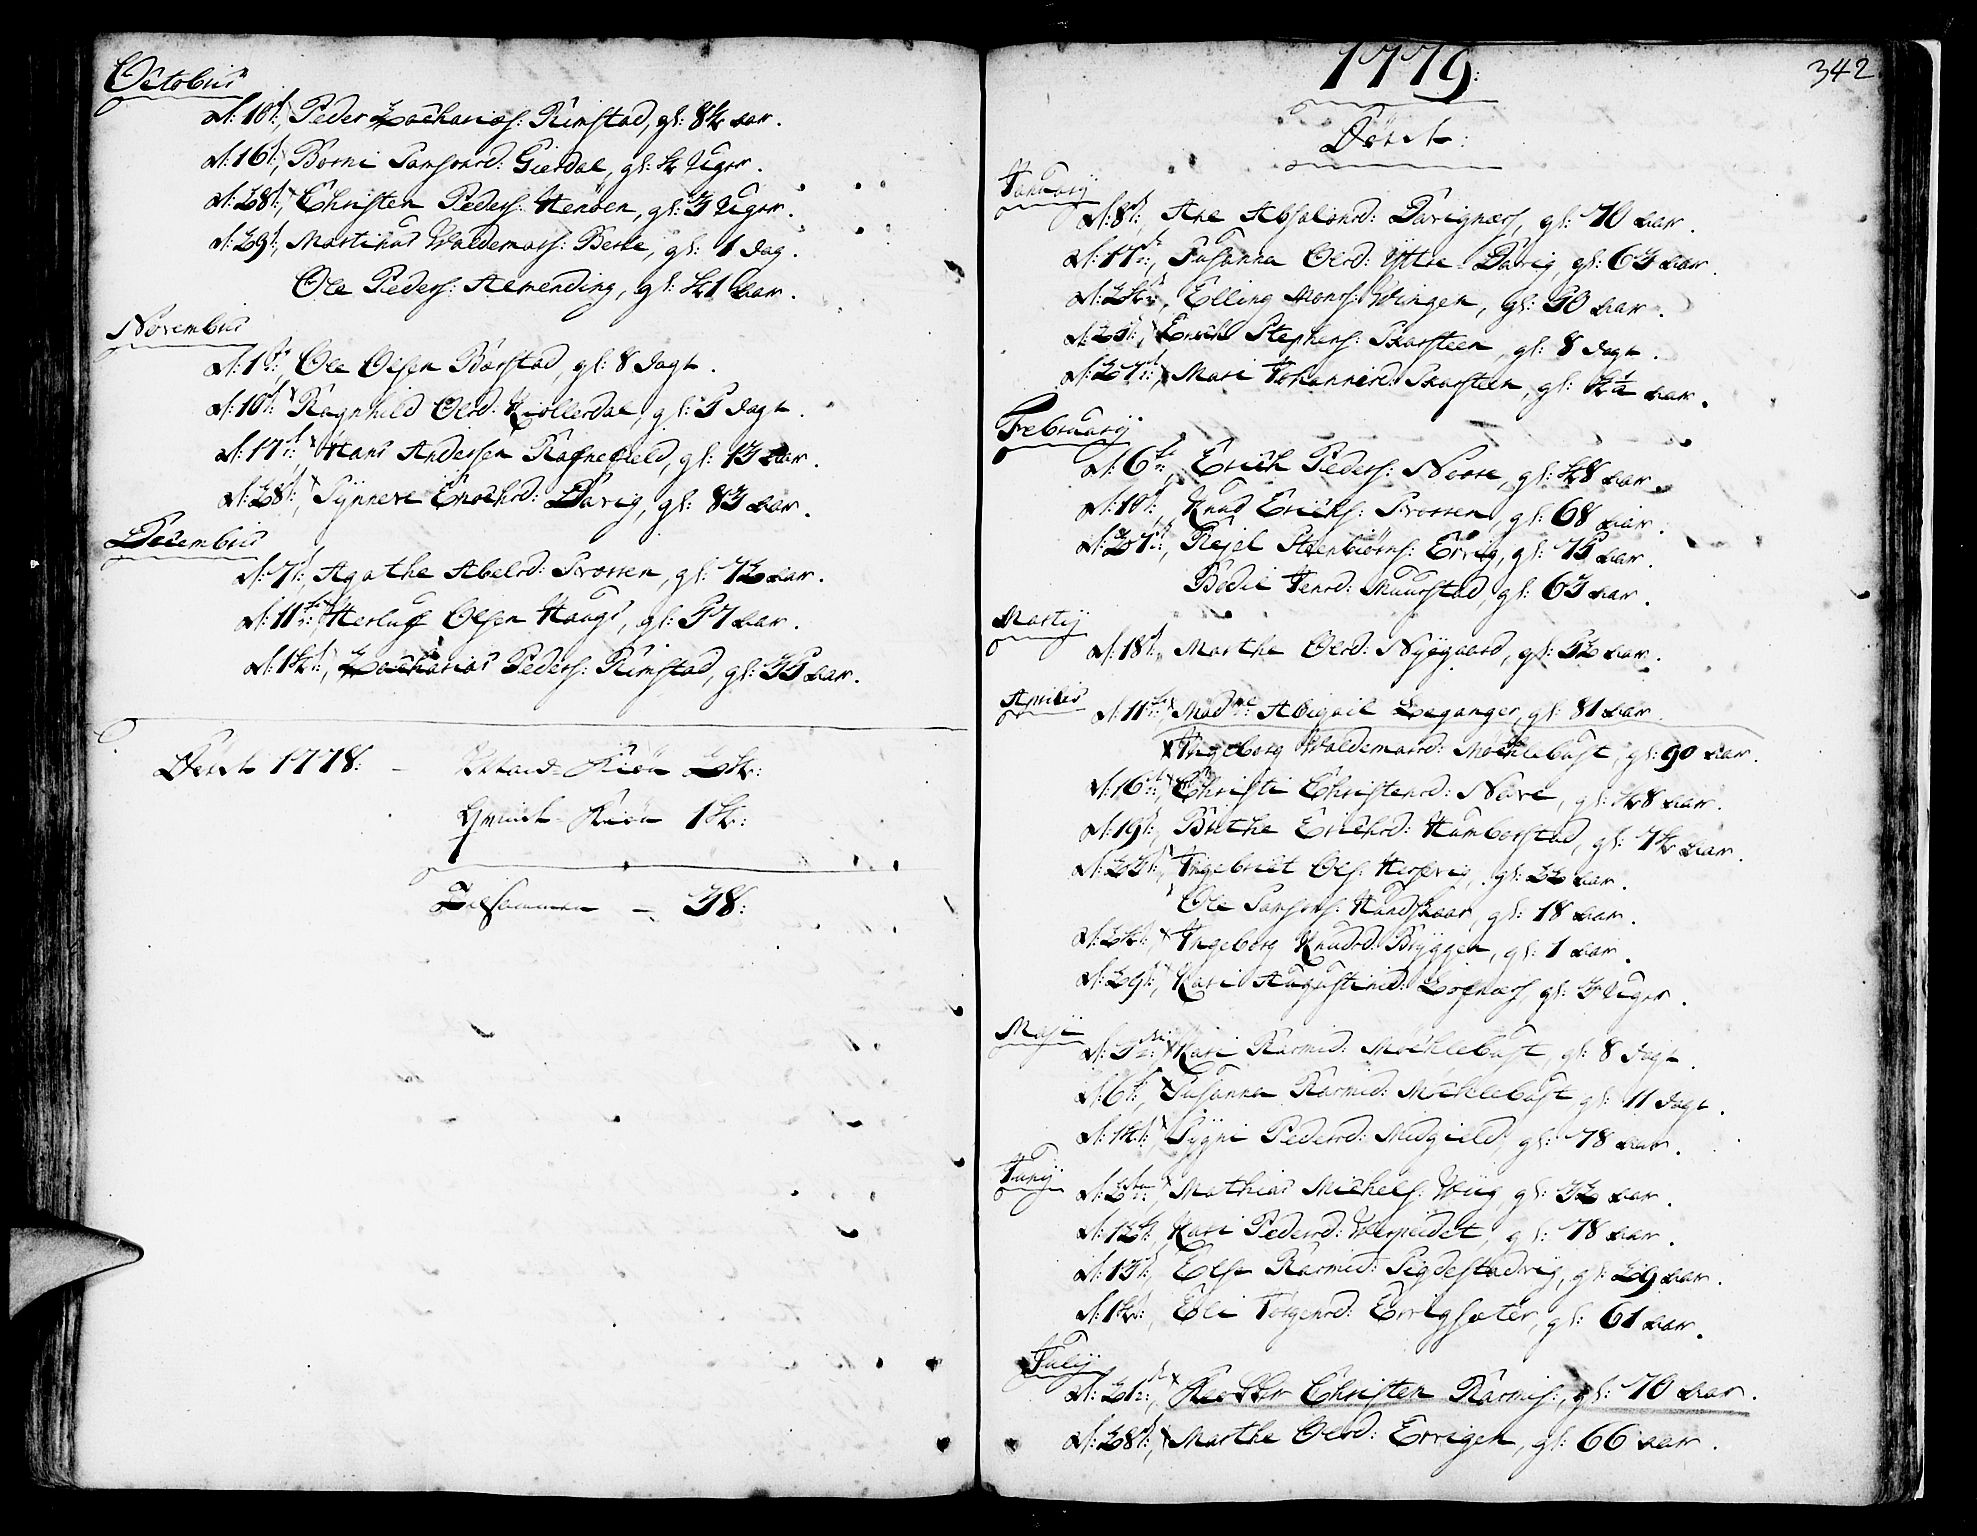 Octobris
d: 10de, Peder Zachariæs: Rimstad, gl: 84 aar.
d: 16de, Borni Samsonsd: Gierdal, gl: 4 Uger.
d: 28de, Christen Peders: Henøen, gl: 3 Uger.
d: 29de, Martinus Waldemars: Berle, gl: 1 dag.
Ole Peders: Almending, gl: 41 aar.
Novembris
d: 1ste, Ole Olsen Barstad, gl: 8 dage.
d: 10de, Ragnhild Olsd: Kiøllerdal, gl: 5 dage.
d: 17de, Hans Andersen Rafnefield, gl: 13 aar.
d: 28de, Synneve Enochsd: Davig, gl: 83 aar.
Decembris
d: 7de, Agathe Abelsd: Svorren, gl: 72 aar.
d: 11te, Herluf Olsen Hauge, gl: 57 aar.
d: 14de, Zacharias Peders: Rimstad, gl: 35 aar.
Døde 1778: - Mand-Kiøn 24:
Qvinde-Kiøn 14:
Tilsammen - 38:
342
1779:
Døde:
Januarij
d: 8de, Ane Absalonsd: Davignæs, gl: 70 aar.
d: 17de, Susanna Olsd: Yttre-Davig, gl: 63 aar.
d: 24de, Elling Mons: Wingen, gl: 50 aar.
d: 25de, Erich Stephens: Skarsteen, gl: 8 dage.
d: 27de, Mari Johannisd: Skarsteen, gl: 2½ aar.
Februarij
d: 6te, Erich Peders: Nore, gl: 48 aar.
d: 10de, Knud Erichs: Svorren, gl: 68 aar.
d: 27de, Kejel Steenbiørns: Ervig, gl: 75 aar.
Bodil Jensd: Maurstad, gl: 63 aar.
Martij
d: 18de, Marthe Olsd: Nygaard, gl: 52 aar.
Aprilis
d: 11te, Madme: Abigail Leganger, gl: 81 aar.
Ingeborg Waldemarsd: Møchlebust, gl: 90 aar.
d: 16de, Christi Christensd: Nore, gl: 48 aar.
d: 19de, Brithe Erichsd: Humborstad, gl: 74 aar.
d: 23de, Ingebrigt Ols: Hersvig, gl: 22 aar.
Ole Samsons: Hundskaar, gl: 18 aar.
d: 24de, Ingeborg Knudsd: Bryggen, gl: 1 aar.
d: 29de, Kari Augustinsd: Lofnæs, gl: 3 Uger.
Maji
d: 3die, Kari Rasmusd: Møchlebust, gl: 8 dage.
d: 6te, Susanna Rasmusd: Møchlebust gl: 11 dage.
d: 14de, Sygni Pedersd: Midgield, gl: 78 aar.
Junij
d: 2den, Mathias Michels: Wiig, gl: 32 aar.
d: 12te, Kari Pedersd: Werpeidet, gl: 78 aar.
d: 13de, Else Rasmusd: Sigdestadvig, gl: 29 aar.
d: 14de, Eli Torgersd: Ervigsæter, gl: 61 aar.
Julij
d: 21de, Klokker Christen Rasmus:, gl: 70 aar.
d: 28de, Marthe Olsd: Ervigen, gl: 66 aar.